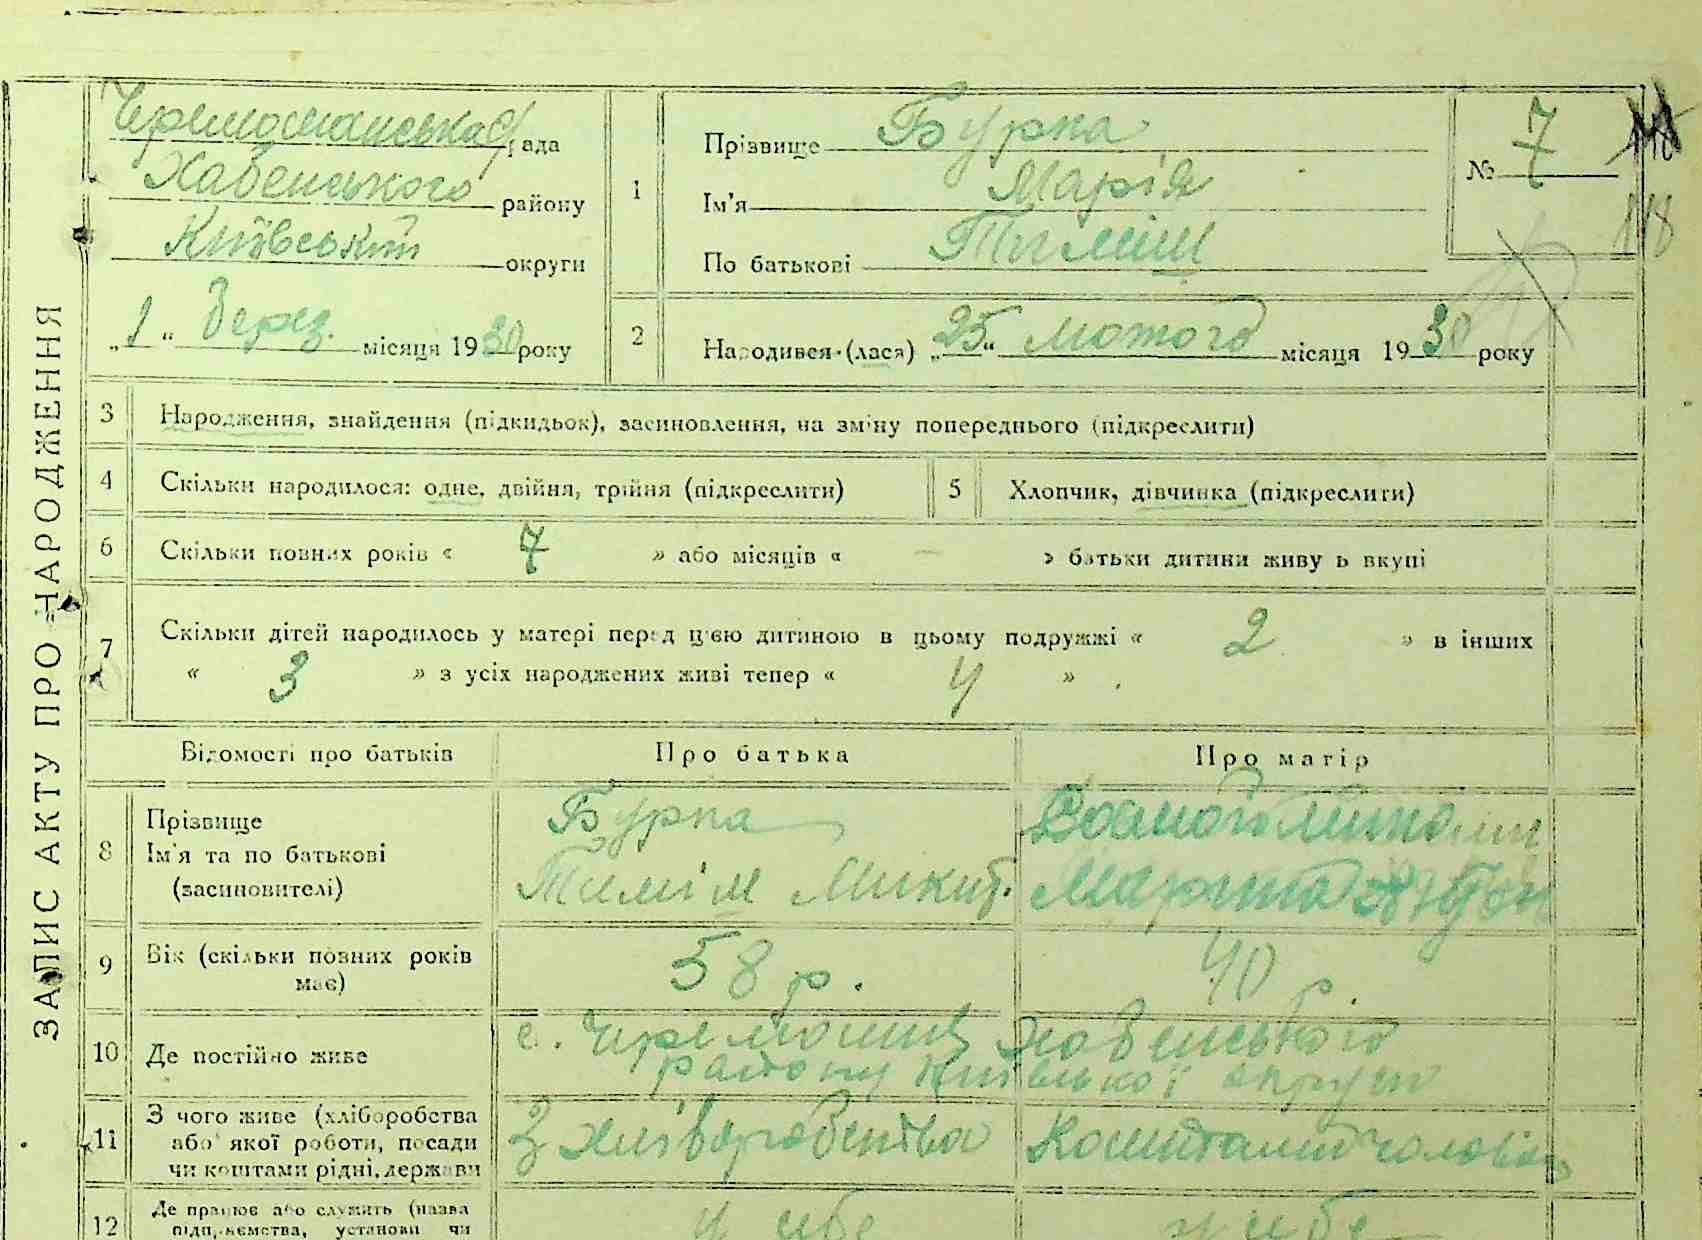 ЗАПИС АКТУ ПРО НАРОДЖЕННЯ
Черемошнянська с/рада
Хабенського району
Київський округи
„1“ Берез. місяця 1930 року
1
Прізвище Бурка
Ім'я Марія
По батькові Тиміш
№ 7
118
2
Народився (лася) „25“ лютого місяця 1930 року
3 Народження, знайдення (підкидьок), засиновлення, на зміну попереднього (підкреслити)
4 Скільки народилося: одне, двійня, трійня (підкреслити)
5 Хлопчик, дівчинка (підкреслити)
6 Скільки повних років « 7 » або місяців « — » батьки дитини живуть вкупі
7 Скільки дітей народилось у матері перед цією дитиною в цьому подружжі « 2 » в інших
« 3 » з усіх народжених живі тепер « 4 » .
Відомості про батьків Про батька Про матір
8 Прізвище
Ім'я та по батькові
(засиновителі)
Бурка
Тиміш Микит.
9 Вік (скільки повних років має)
58 р. 40 р.
10 Де постійно живе
с. Черемошня Хабенського
району Київської округи
11 З чого живе (хліборобства
або якої роботи, посади
чи коштами рідні, держави
З хліборобства Коштами чоловіка
12 Де працює або служить (назва
підприємства, установи чи
у себе у себе